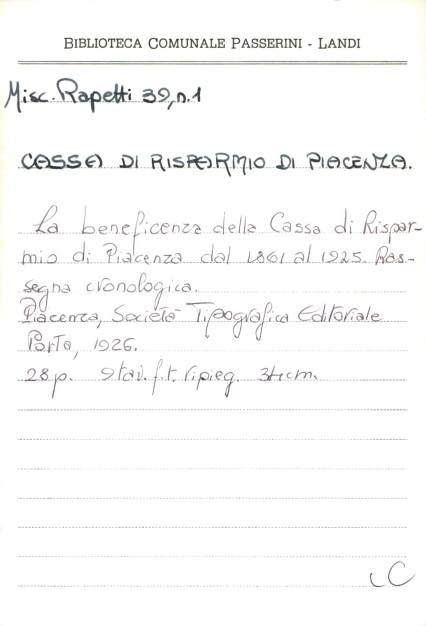 BIBLIOTECA COMUNALE PASSERINI - LANDI
Misc. Rapetti 39, n.1
CASSA DI RISPARMIO DI PIACENZA.
La beneficenza della Cassa di Rispar-
mio di Piacenza dal 1861 al 1925. Ras-
segna cronologica.
Piacenza, Società Tipografica Editoriale
Porta, 1926.
28 p. 9 tav. f.t. ripieg. 34 cm.